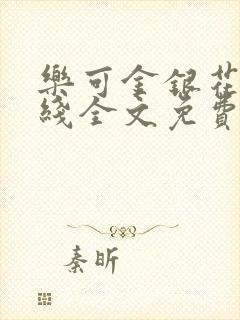 樂可金銀花
綫全文免費
秦昕